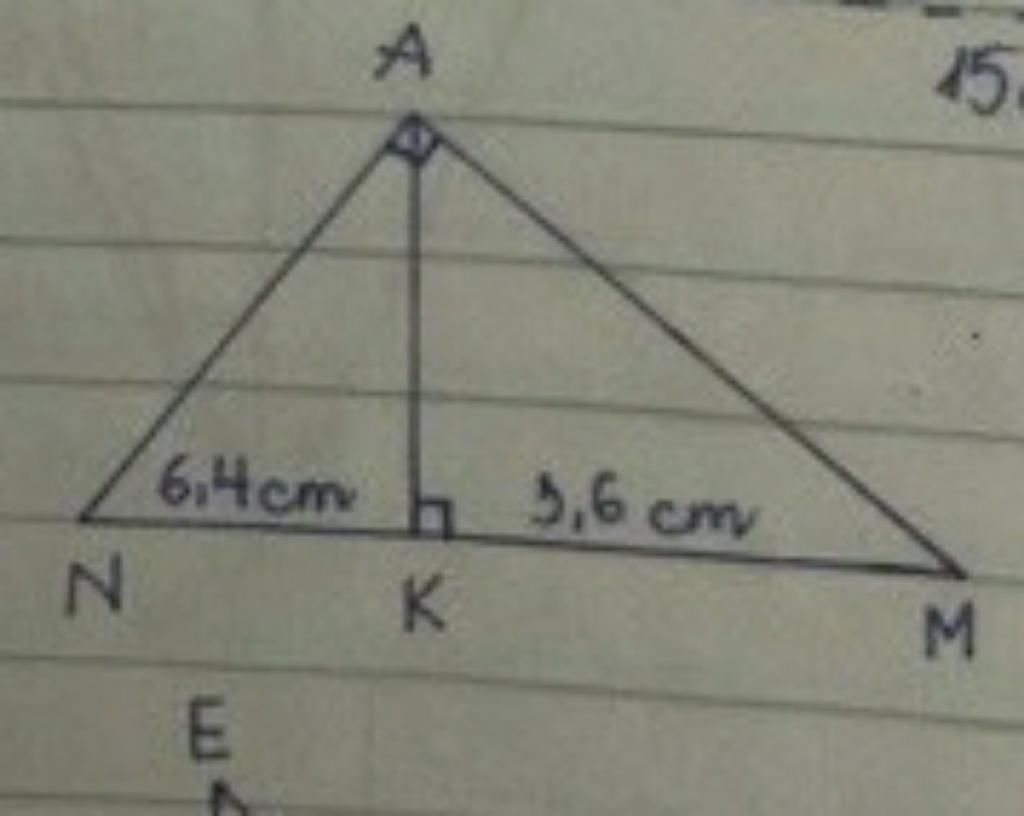 A
15
6,4cm
3,6 cm
N
K
M
E